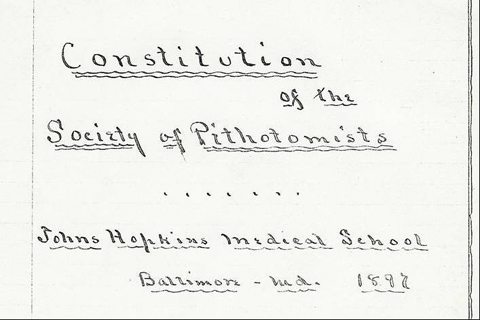 Constitution
of the
Society of Pithotomists
. . . . . . .
Johns Hopkins Medical School
Baltimore - Md. 1897